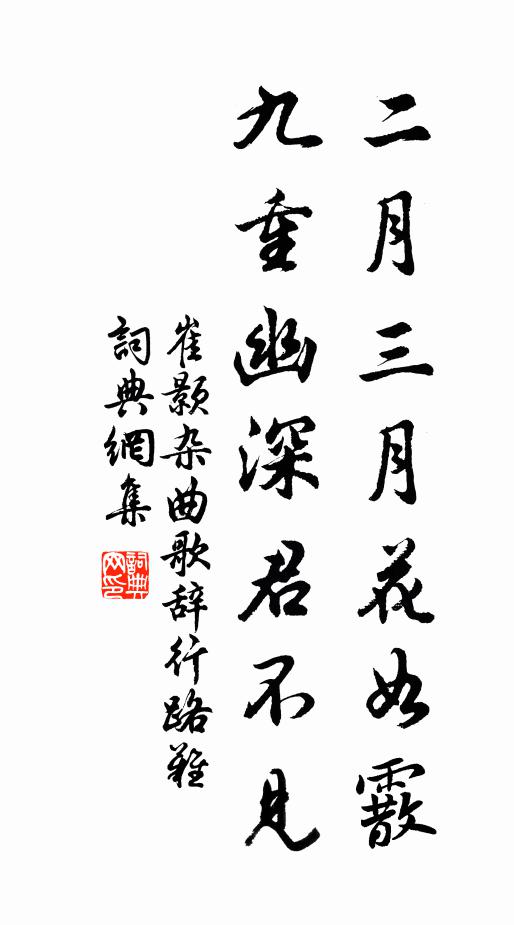 二月三月花如霰
九重幽深君不見
崔顥杂曲歌辞行路難
詞典網集
詞典
网印